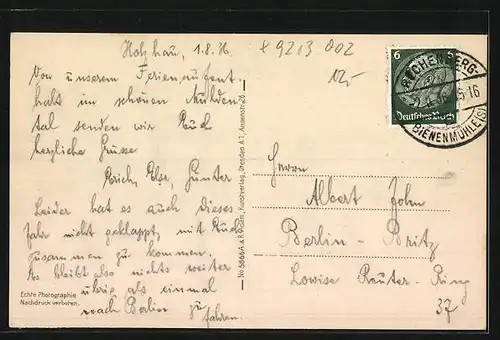 Holzhau, 1.8.36
x 9213 002
12,-
Von unserem Ferienaufent-
halt im schönen Mulden-
tal senden wir Euch
herzliche Grüsse
Erich, Else, Günter
Leider hat es auch dieses
Jahr nicht geklappt, mit Euch
zusammen zu kommen.
Es bleibt also nichts weiter
übrig als einmal
nach Berlin zu
fahren.
Echte Photographie
Nachdruck verboten.
Dresden A 1, Annenstr. 26
6
Deutsches Reich
BIENENMÜHLE(S)
Herrn
Albert John
Berlin-Britz
Lowise Reuter-Ring
37